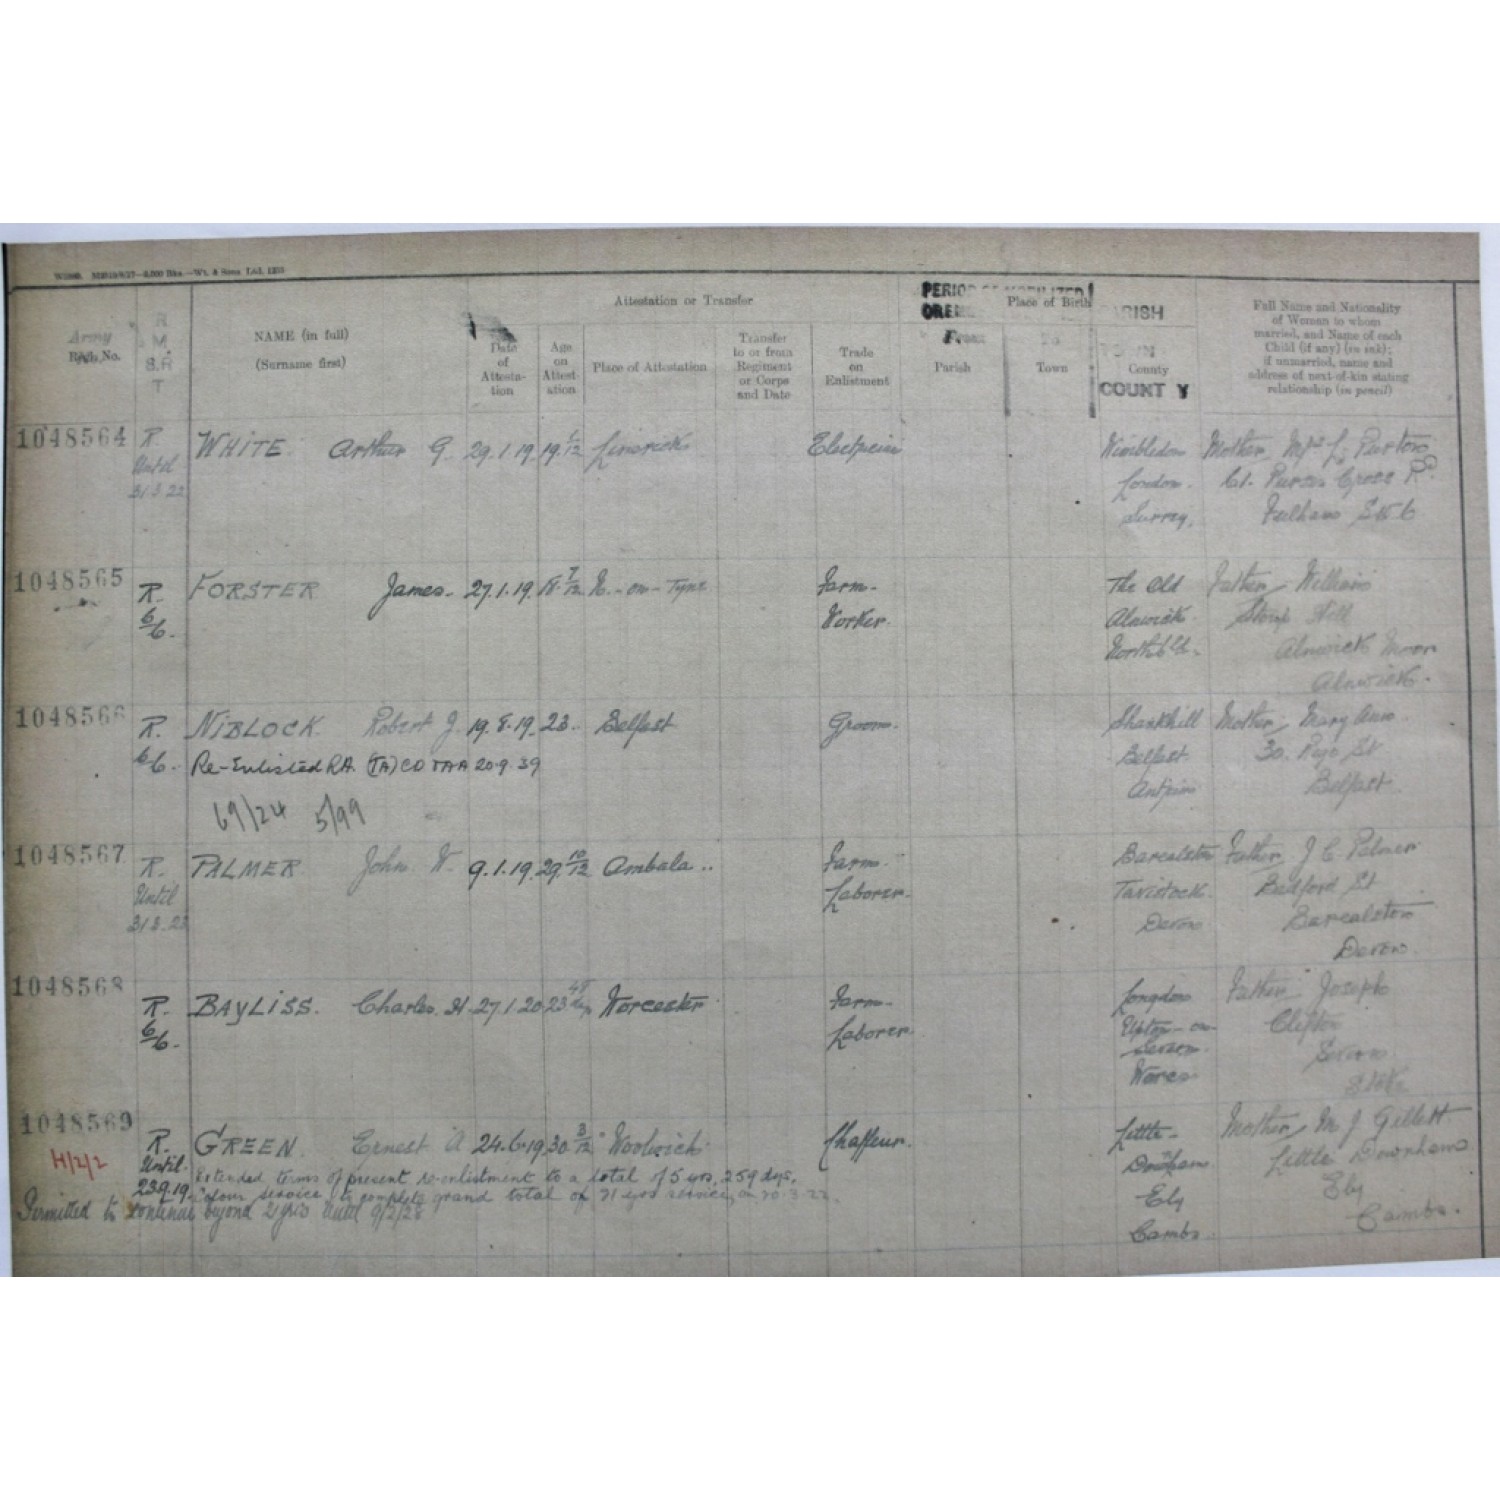 Attestation or Transfer
Place of Birth
PARISH
TOWN
COUNTY
Army
Regtl. No.
R
M.
S.R
T
NAME (in full)
(Surname first)
Date
of
Attesta-
tion
Age
on
Attest-
ation
Place of Attestation
Transfer
to or from
Regiment
or Corps
and Date
Trade
on
Enlistment
From
Parish
To
Town
County
Full Name and Nationality
of Woman to whom
married, and Name of each
Child (if any) (in ink);
if unmarried, name and
address of next-of-kin stating
relationship (in pencil)
1048564 R. WHITE. Arthur G. 29.1.19. 19 1/12 Limerick Electrician Wimbledon Mother, Mrs L. Purton
Until London. 61. Purser Cross Rd.
31.3.22 Surrey. Fulham S.W.6
1048565 R. FORSTER James. 27.1.19. 18 7/12 N.-on-Tyne Farm- The Old Father, William
6/6. Worker. Alnwick. Hill
Northbld. Alnwick Moor
Alnwick.
1048566 R. NIBLOCK. Robert J. 19.8.19. 23. Belfast Groom. Shankhill Mother, Mary Ann.
6/6. Re-Enlisted RA (TA) CD TAA 20.9.39 Belfast 30. St
69/24 5/99 Antrim Belfast.
1048567 R. PALMER John. W. 9.1.19. 29 10/12 Ambala.. Farm- Barealston Father, J C Palmer
Until Laborer. Tavistock. Bedford St
31.3.23 Devon. Barealston
Devon.
1048568 R. BAYLISS. Charles. H. 27.1.20 23 48 dys Worcester Farm- Longdon Father, Joseph
6/6. Laborer. Upton-on- Clifton
Severn. Severn
Worcs Stoke
1048569 R. GREEN. Ernest A 24.6.19 30 3/12 Woolwich. Chaffeur. Little- Mother, M J Gillett
H/2/2 Until Downham. Little Downham
23.9.19. Extended terms of present re-enlistment to a total of 5 yrs, 259 dys, Ely Ely
Colour service to complete grand total of 21 yrs service, on 30.3.22. Cambs. Cambs.
Permitted to continue beyond 21 yrs auth 9/2/28